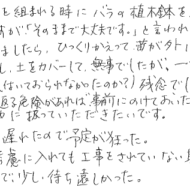 を組まれる時にバラの植木鉢を
すが「そのままで大丈夫です。」と言われ
ましたら、ひっくりかえって茎がグト
し、土をカバーして、無事でしたが、一
はいておられなかったのか?)残念でし
返る危険があれば事前にのけておいた
に扱っていただきたいです。
遅れたので予定が狂った。
考慮に入れても工事をされていない
で少し待ち遠しかった。